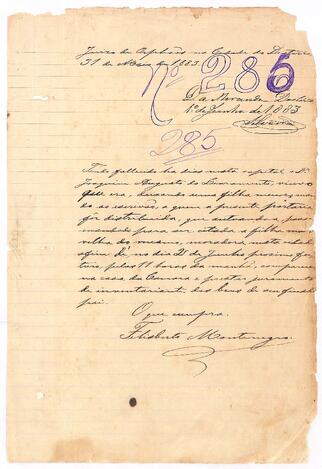 Juizo de Orphãos na Cidade do Desterro
31 de Maio de 1883.
Nº 285
D. a Miranda Desterro
1º de Junho de 1883
285
Tendo fallecido ha dias nesta capital, o Dr
Joaquim Augusto do Livramento, viuvo
que era, deixando uma filha menor
ao escrivão, a quem a presente portaria
fôr distribuida, que autuando-a passe
mandado para ser citada a filha mais
velha do mesmo, moradora nesta cidade
afim de no dia 2 de Junho proximo fu-
turo, pelas 11 horas da manhã, comparecer
na casa da Camara e prestar juramento
de inventariante dos bens de seu finado
pai.
O que cumpra.
Felisberto Montenegro